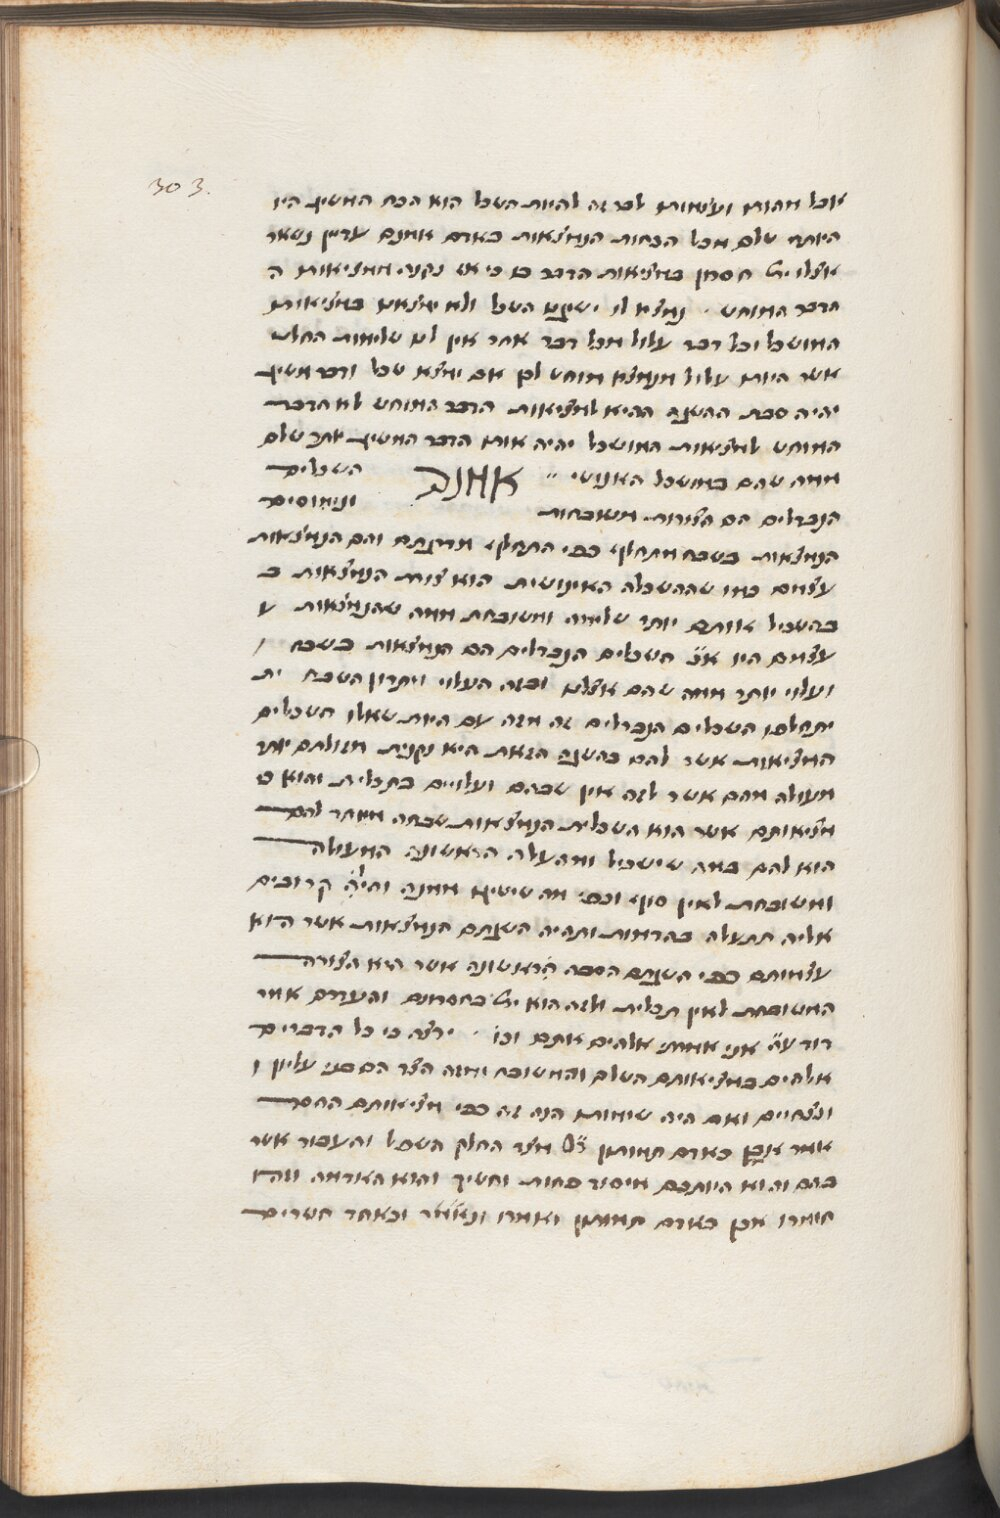 303.
אבל מהות ועצמות לבד זה להיות השכל הוא הכח המשיג היו
היותר שלם מכל הכחות הנמצאות באדם אמנם עדיין נשאר
אצלו חסרון במציאות הדבר כי אם נקנה ממציאות ה
הדבר המוחש נמצא לו ישיגם השכל ולא ימצאם במציאות
המושכל וכל דבר עלול מכל דבר אחר אין לו שלימות החלט
אשר היות עלול מנמצא מוחש לכן אם ימצא שכל ודבר משיג
יהיה סבת ההשגה ההיא למציאות הדבר המוחש לא הדבר
המוחש למציאות המושכל יהיה אותו הדבר המשיג יותר שלם
ממה שהם במושכל האנושי אמנם השכלים
הנבדלים הם הצורות משובחות ונימוסים
הנמצאות בשבח מתחלף כפי התחלף מדרגתם והם הנמצאות
עצמם כמו שההשכלה האינושית הוא צורת הנמצאות ב
בהשכיל אותם יותר שלימה ומשובחת ממה שהנמצאות ע
עצמם היו א״כ השכלים הנבדלים הם הנמצאות בשבח ו
ועלוי יותר ממה שהם אצלם ובזה העלוי ויתרון השבח ית
יתחלפו השכלים הנבדלים זה מזה עם היות שאלו השכלים
המציאות אשר להם בהשגה הזאת היא נקנית מזולתם יותר
מעולה מהם אשר לזה אין שבחם ועלויים בתכלית והוא כי
מציאותם אשר הוא השכלית הנמצאות שבחה מיוחד להם
הוא להם במה שישכיל ומהעלה הראשונה המעולה
ומשובחת לאין סוף וכפי מה שישיגו ממנה והיו קרובים
אליה תתעלה בהדמות ותהיה השגתם הנמצאות אשר הוא
עצמותם כפי השגתם הסבה הראשונה אשר היא הצורה
המשובחת לאין תכלית ולזה הוא בחסרונם והעדרם אמר
דוד ע״ה אני אמרתי אלהים אתם וכו׳ ירצה כי כל הדברים
אלהים במציאותם השלם והמשובח ומזה הצד הם בני עליון ו
ונצחיים ואם היה שימות הנה זה כפי מציאותם החסר
אמר אכן כאדם תמותון מצד החלק השפל והעכור אשר
בהם והוא היותכם מיסוד פחות וחשיך והוא האדמה וזהו
חומרו אכן כאדם תמותון ואמרו וכאחד השרים